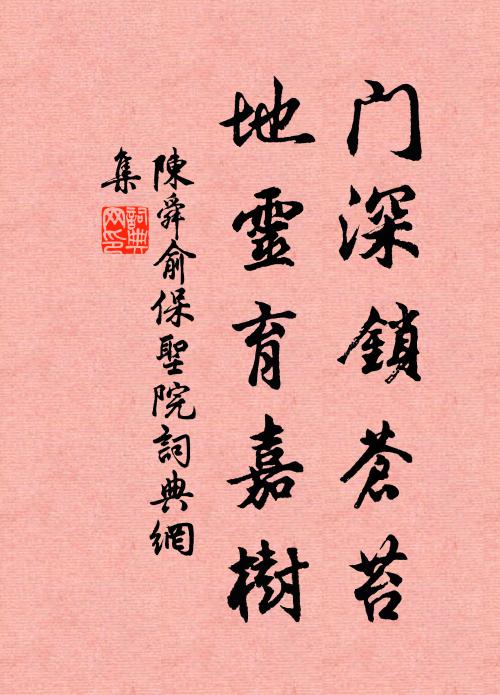 门深鎖蒼苔
地靈育嘉樹
陳舜俞保聖院詞典網
集
詞典
网印